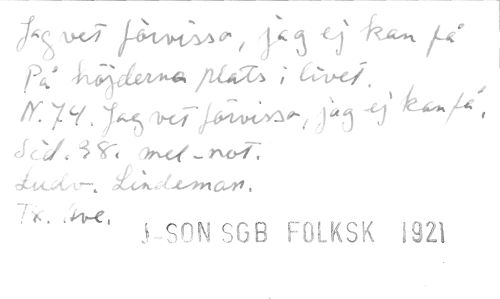 Jag vet förvisso, jag ej kan få
På höjderna plats i livet.
N. 74. Jag vet förvisso, jag ej kan få.
Sid. 38. mel-not.
Ludv. Lindeman.
Tx. Sve.
J-SON SGB FOLKSK 1921